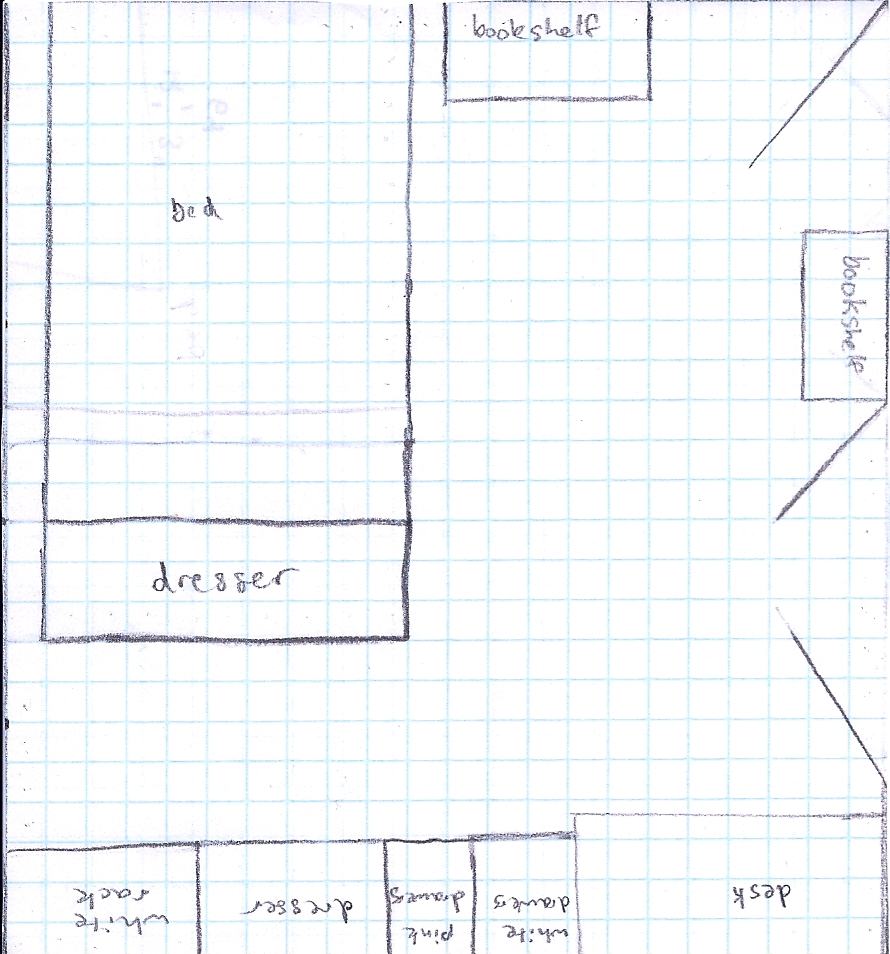 bookshelf
bed
bookshelf
dresser
white
rack
dresser
pink
drawers
white
drawers
desk